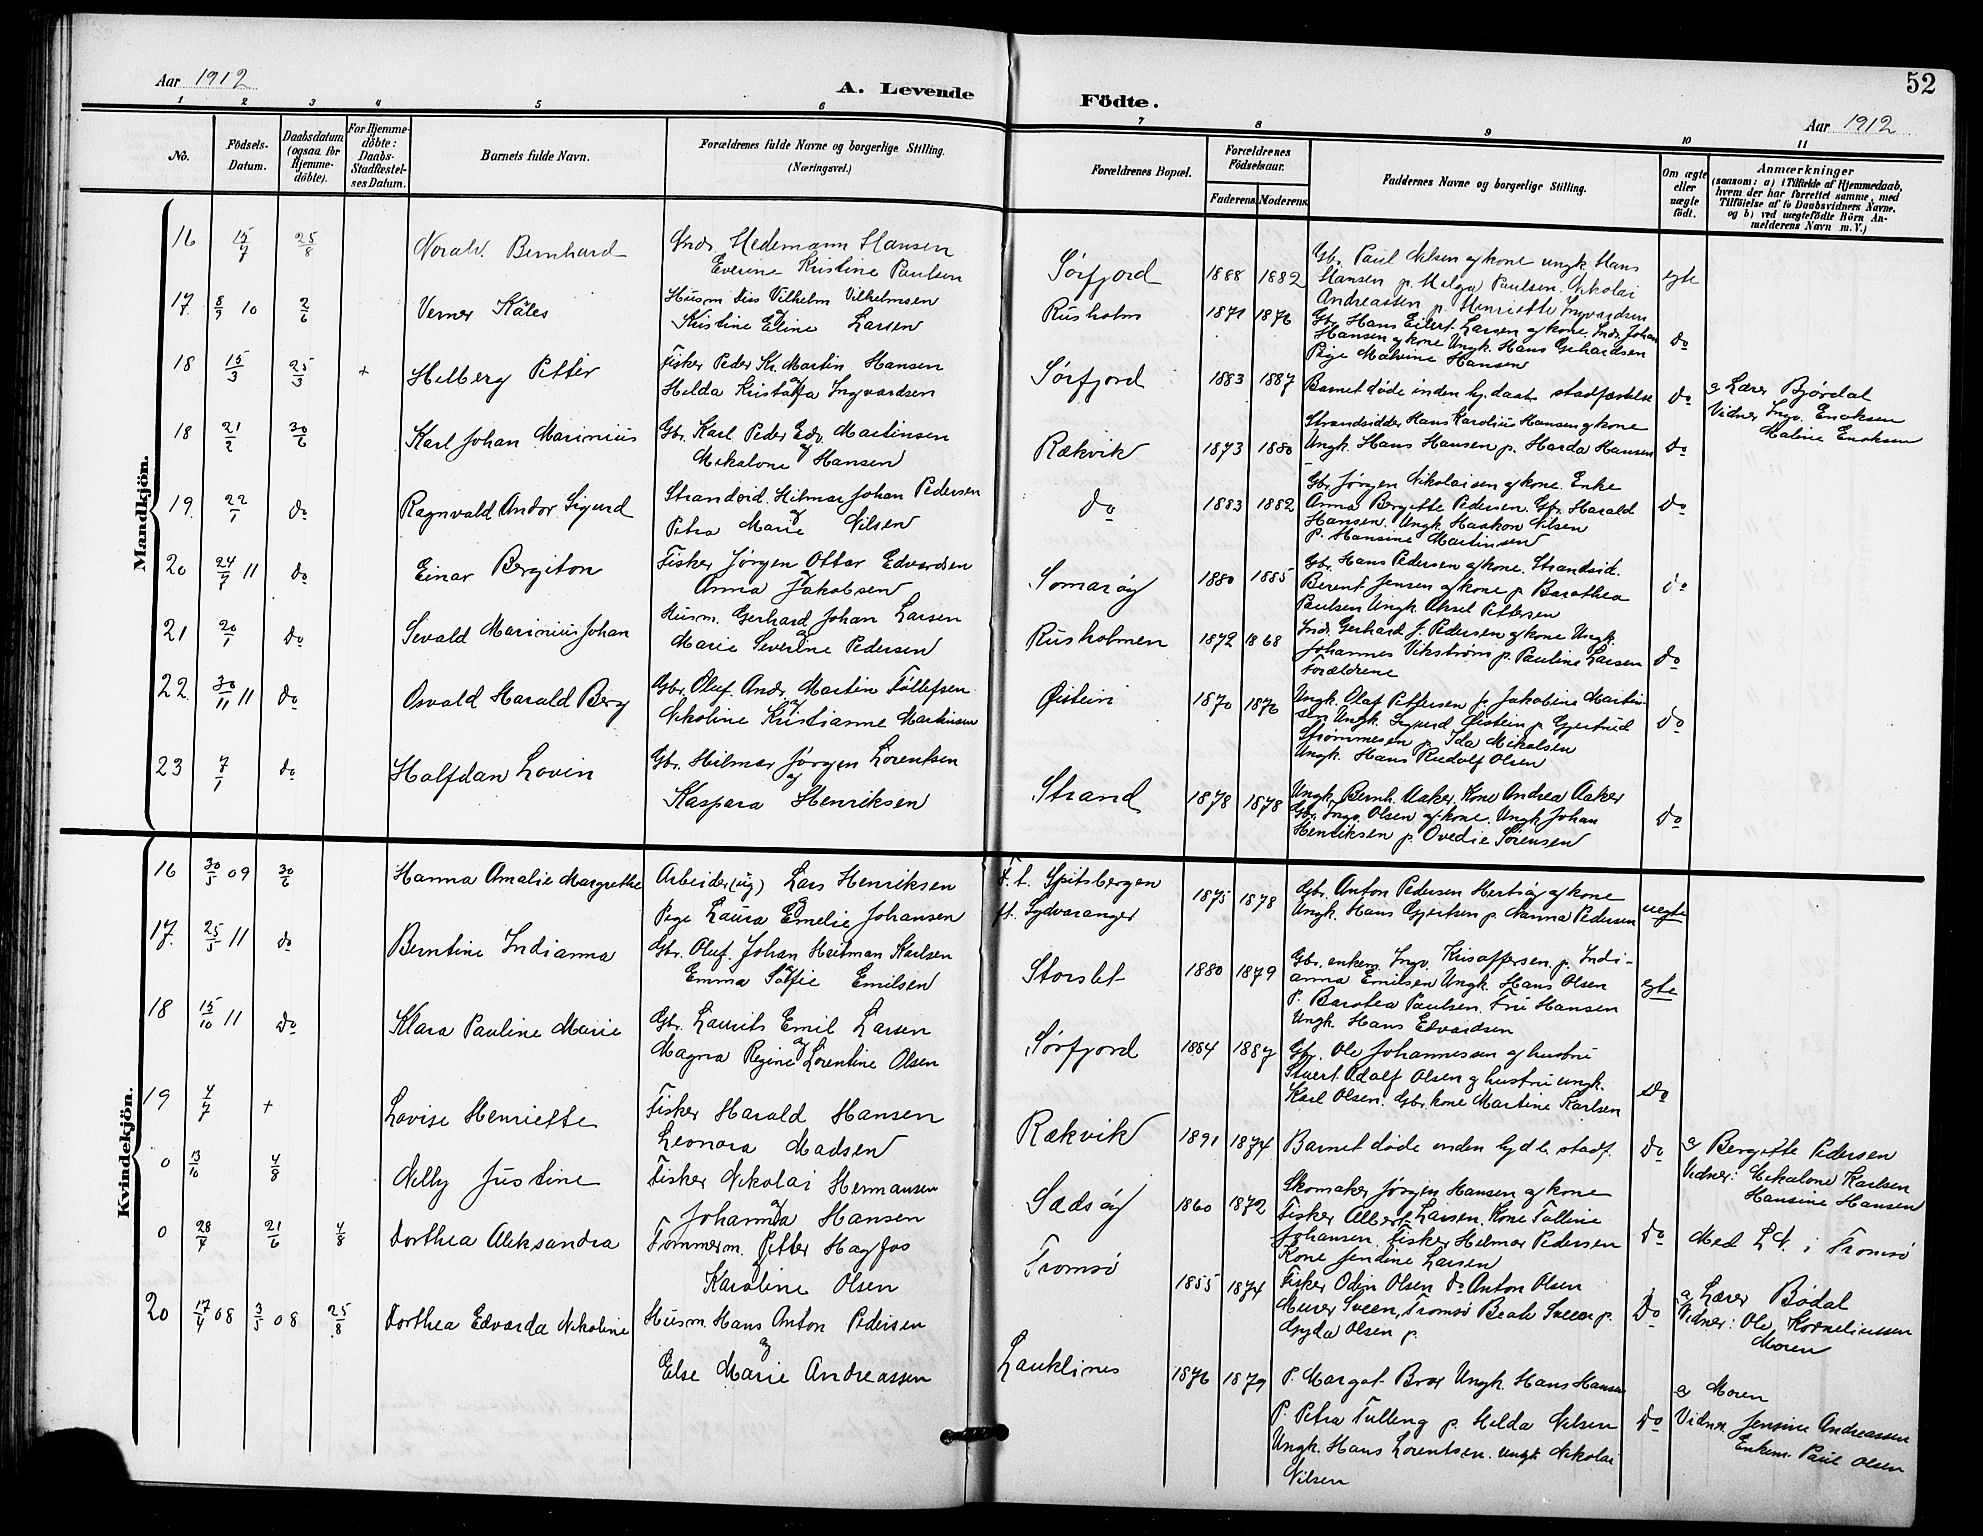 Aar 1912
A. Levende Födte.
52
Aar 1912
1 2 3 4 5 6 7 8 9 10 11
No.
Födsels-Datum.
Daabsdatum (ogsaa for Hjemme-döbte).
For Hjemme-döbte: Daabs-Stadfæstel-ses Datum.
Barnets fulde Navn.
Forældrenes fulde Navne og borgerlige Stilling. (Næringsvei.)
Forældrenes Bopæl.
Forældrenes Födselsaar.
Faderens. Moderens.
Faddernes Navne og borgerlige Stilling.
Om ægte eller uægte födt.
Anmærkninger
(saasom: a) i Tilfælde af Hjemmedaab, hvem der har forrettet samme, med Tilföielse af to Daabsvidners Navne, og b) ved uægtefödte Börn An-melderens Navn m. V.)
Mandkjön.
16 15/7 25/8 Norald. Bernhard
Indr. Hedemann Hansen
Everine Kristine Paulsen
Sørfjord 1888 1882
Gbr. Paul Nilsen og kone ungk. Hans
Hansen p. Helga Paulsen. Nikolai
Andreassen p. Henriette Ingvardsen
egte
17. 8/9 10 2/6 Verner Käles
Husm. Vilhelm Vilhelmsen
Kristine Eline Larsen
Rusholm 1871 1876
Gbr. Hans Eilert Larsen og kone. Indr. Johan
Hansen og kone Ungk. Hans Gerhardsen
Pige Malvine Hansen
do
18 15/3 25/3 + Helberg Petter
Fisker Peder Kr. Martin Hansen
og
Hilda Kristaffa Ingvardsen
Sørfjord 1883 1887
Barnet døde inden hj. daabs stadfæstelse
do
a Lærer Bjørdal
Vidner Ingv. Enoksen
Maline Enoksen
18 21/2 30/6 Karl Johan Marinius
Gbr. Karl Peder Edv. Martinsen
og
Mikalone Hansen
Rækvik 1873 1880
Strandsidder Hans Karolius Hansen og kone
Ungk. Hans Hansen p. Harda Hansen
do
19. 22/1 do Ragnvald Andor Sigurd
Strandsid. Hilmar Johan Pedersen
og
Petra Marie Nilsen
do 1883 1882
Gbr. Jørgen Nikolaisen og kone. Enke
Anna Bergitte Pedersen. Gbr. Harald
Hansen. Ungk. Haakon Nilsen
P. Hansine Martinsen
do
20 24/9 11 do Einar Bergiton
Fisker Jørgen Ottar Edvardsen
og
Anna Jakobsen
Somarøy 1880 1885
Gbr. Hans Pedersen og kone. Strandsid.
Berent Jensen og kone p. Barothea
Paulsen Ungk. Aksel Pettersen
do
21 20/1 do Sevald Marinius Johan
Husm. Gerhard Johan Larsen
og
Marie Severine Pedersen
Rusholmen 1872 1868
Indr. Gerhard J. Pedersen og kone Ungk.
Johannes Vikstrøm p. Pauline Larsen
Forældrene
do
22. 30/11 11 do Osvald Harald Berg
Gbr. Oluf. Andr. Martin Tollefsen
og
Nikoline Kristianne Martinsen
Øistein 1870 1876
Ungk. Olaf Pettersen p. Jakobine Martin-
sen Ungk. Sigurd Øistein p. Gjertrud
Strømmesen p. Ida Mikalsen
Ungk. Hans Rudolf Olsen
do
23 7/1 do Halfdan Lovin
Gbr. Hilmar Jørgen Lorentsen
og
Kaspara Henriksen
Strand 1878 1878
Ungk. Bernh. Aaker. Kone Andrea Aaker
Gbr. Ingv. Olsen og kone. Ungk Johan
Henriksen p. Ovedie Sørensen
do
Kvindekjön.
16 30/5 09 30/6 Hanna Amalie Margrethe
Arbeider (ug) Lars Henriksen
og
Pige Laura Emelie Johansen
F. t. Spitsbergen
ft. Sydvaranger
1875 1878
Gbr. Anton Pedersen Hertsøy og kone
Ungk. Hans Gjertsen p. Nanna Pedersen
uegte
17. 25/5 11 do Berntine Indianna
Gbr. Oluf. Johan Hartman Karlsen
og
Emma Sofie Emilsen
Storslet 1880 1879
Gbr. enkem. Ingv. Kristoffersen. p. Indi-
anna Emilsen Ungk. Hans Olsen
P. Barotea Paulsen. Fru Hansen
Ungk. Hans Edvardsen
egte
18 15/10 11 do Klara Pauline Marie
Gbr. Laurits Emil Larsen
og
Magna Regine Lorentine Olsen
Sørfjord 1884 1887
Gbr. Ole Johannessen og hustru
Stuert. Adolf Olsen og hustru ungk.
Karl Olsen. Gbr. kone Martine Karlsen
do
19 4/7 + Lovise Henriette
Fisker Harald Hansen
Leonora Madsen
Rækvik 1891 1874
Barnet døde inden hjd b. stadf.
do
a Bergitte Pedersen
Vidner: Mikalone Karlsen
Hansine Hansen
0 13/10 4/8 Nelly Justine
Fisker Nikolai Hermansen
og
Johanna Hansen
Sædsøy 1860 1872
Skomaker Jørgen Hansen og kone
Fisker Albert Larsen. Kone Talline
Johansen. Fisker Hilmar Pedersen
Kone Jendine Larsen
do
Med L.A. i Tromsø
0 28/7 21/6 4/8 Dorthea Aleksandra
Tømmerm. Petter Hagfos
og
Karoline Olsen
Tromsø 1855 1874
Fisker Odin Olsen do Anton Olsen
Murer Sveen, Tromsø Beate Sveen p.
Gyda Olsen p.
do
a Lærer Bødal
Vidner: Ole Korneliussen
Moren
20 17/4 08 3/5 08 25/8 Dorthea Edvarda Nikoline
Husm. Hans Anton Pedersen
og
Else Marie Andreassen
Lauklines 1876 1879
P. Margot Bror Ungk. Hans Hansen
P. Petra Tulling p. Hilda Nilsen
Ungk. Hans Lorentsen. ungk Nikolai
Nilsen
do
a Moren
Vidner Jensine Andreassen
Enkem. Paul Olsen